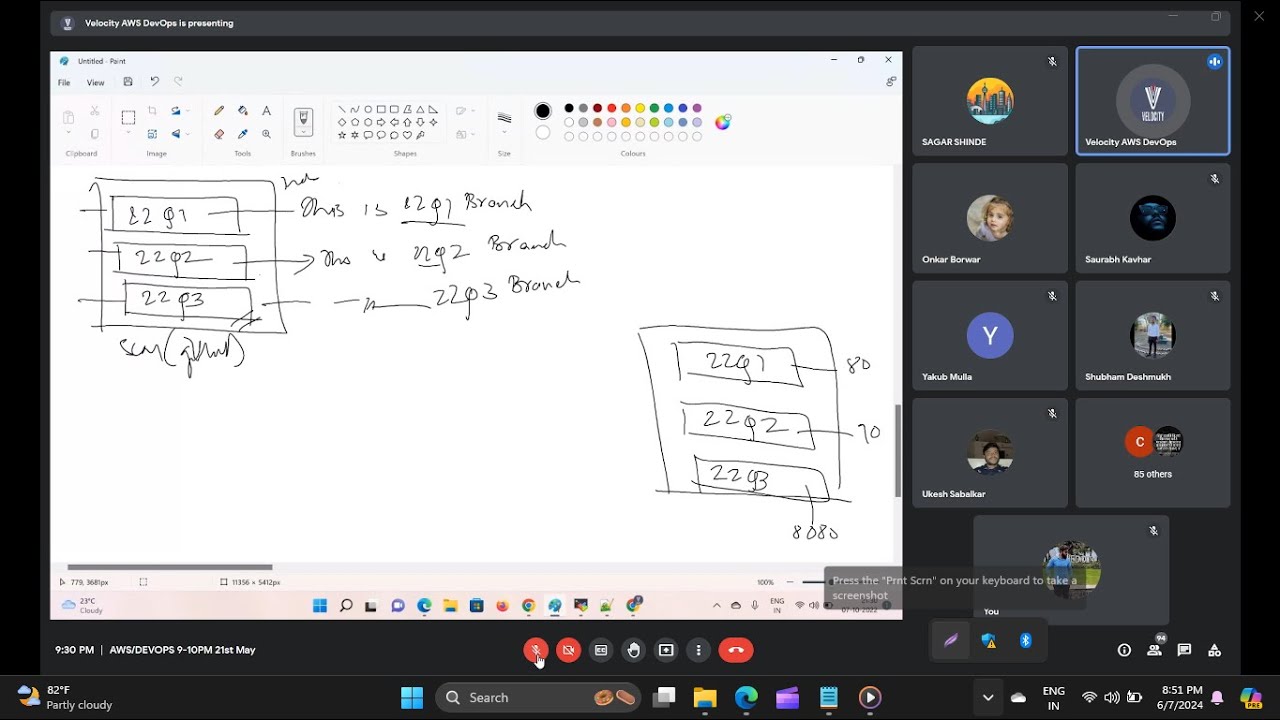 Velocity AWS DevOps is presenting
Untitled - Paint
File View
Clipboard
Image
Tools
Brushes
Shapes
Size
Colours
22q1
This is 22q1 Branch
22q2
This is 22q2 Branch
22q3
22q3 Branch
scm(github)
22q1
80
22q2
90
22q3
8080
779, 3681px
11356 × 5412px
100%
23°C
Cloudy
ENG
IN
07-10-2022
SAGAR SHINDE
Velocity AWS DevOps
VELOCITY
Onkar Borwar
Saurabh Kavhar
Y
Yakub Mulla
Shubham Deshmukh
Ukesh Sabalkar
C
85 others
You
Press the "Prnt Scrn" on your keyboard to take a
screenshot
9:30 PM | AWS/DEVOPS 9-10PM 21st May
94
82°F
Partly cloudy
Search
ENG
IN
8:51 PM
6/7/2024
PRE